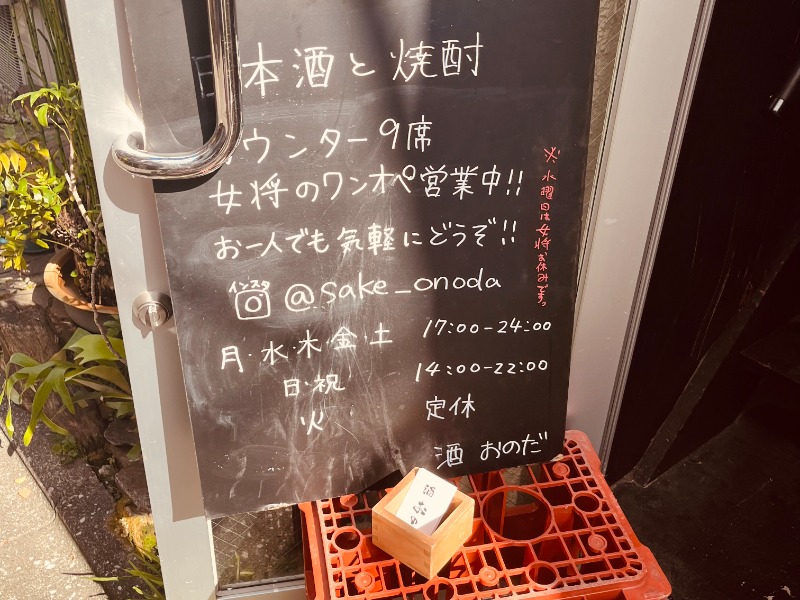 日本酒と焼酎
カウンター9席
女将のワンオペ営業中!!
お一人でも気軽にどうぞ!!
インスタ @sake_onoda
月・水・木・金・土 17:00-24:00
日・祝 14:00-22:00
火 定休
酒 おのだ
※水曜日は女将お休みです。
酒